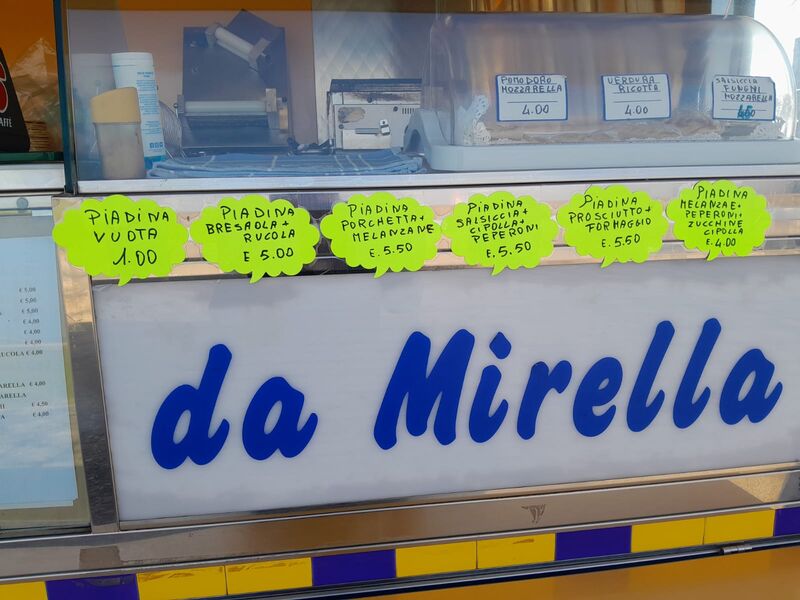 POMODORO
MOZZARELLA
4.00
VERDURA
RICOTTA
4.00
SALSICCIA
FUNGHI
MOZZARELLA
4.50
PIADINA
VUOTA
1.00
PIADINA
BRESAOLA+
RUCOLA
E 5.00
PIADINA
PORCHETTA+
MELANZANE
E. 5.50
PIADINA
SALSICCIA+
CIPOLLA+
PEPERONI
E. 5.50
PIADINA
PROSCIUTTO+
FORMAGGIO
E. 5.50
PIADINA
MELANZE+
PEPERONI+
ZUCCHINE
CIPOLLA
E. 4.00
€ 5,00
€ 5,00
€ 5,00
€ 4,00
€ 4,00
€ 4,00
RUCOLA € 4,00
ARELLA € 4,00
ARELLA
€ 4,50
€ 4,00
da Mirella